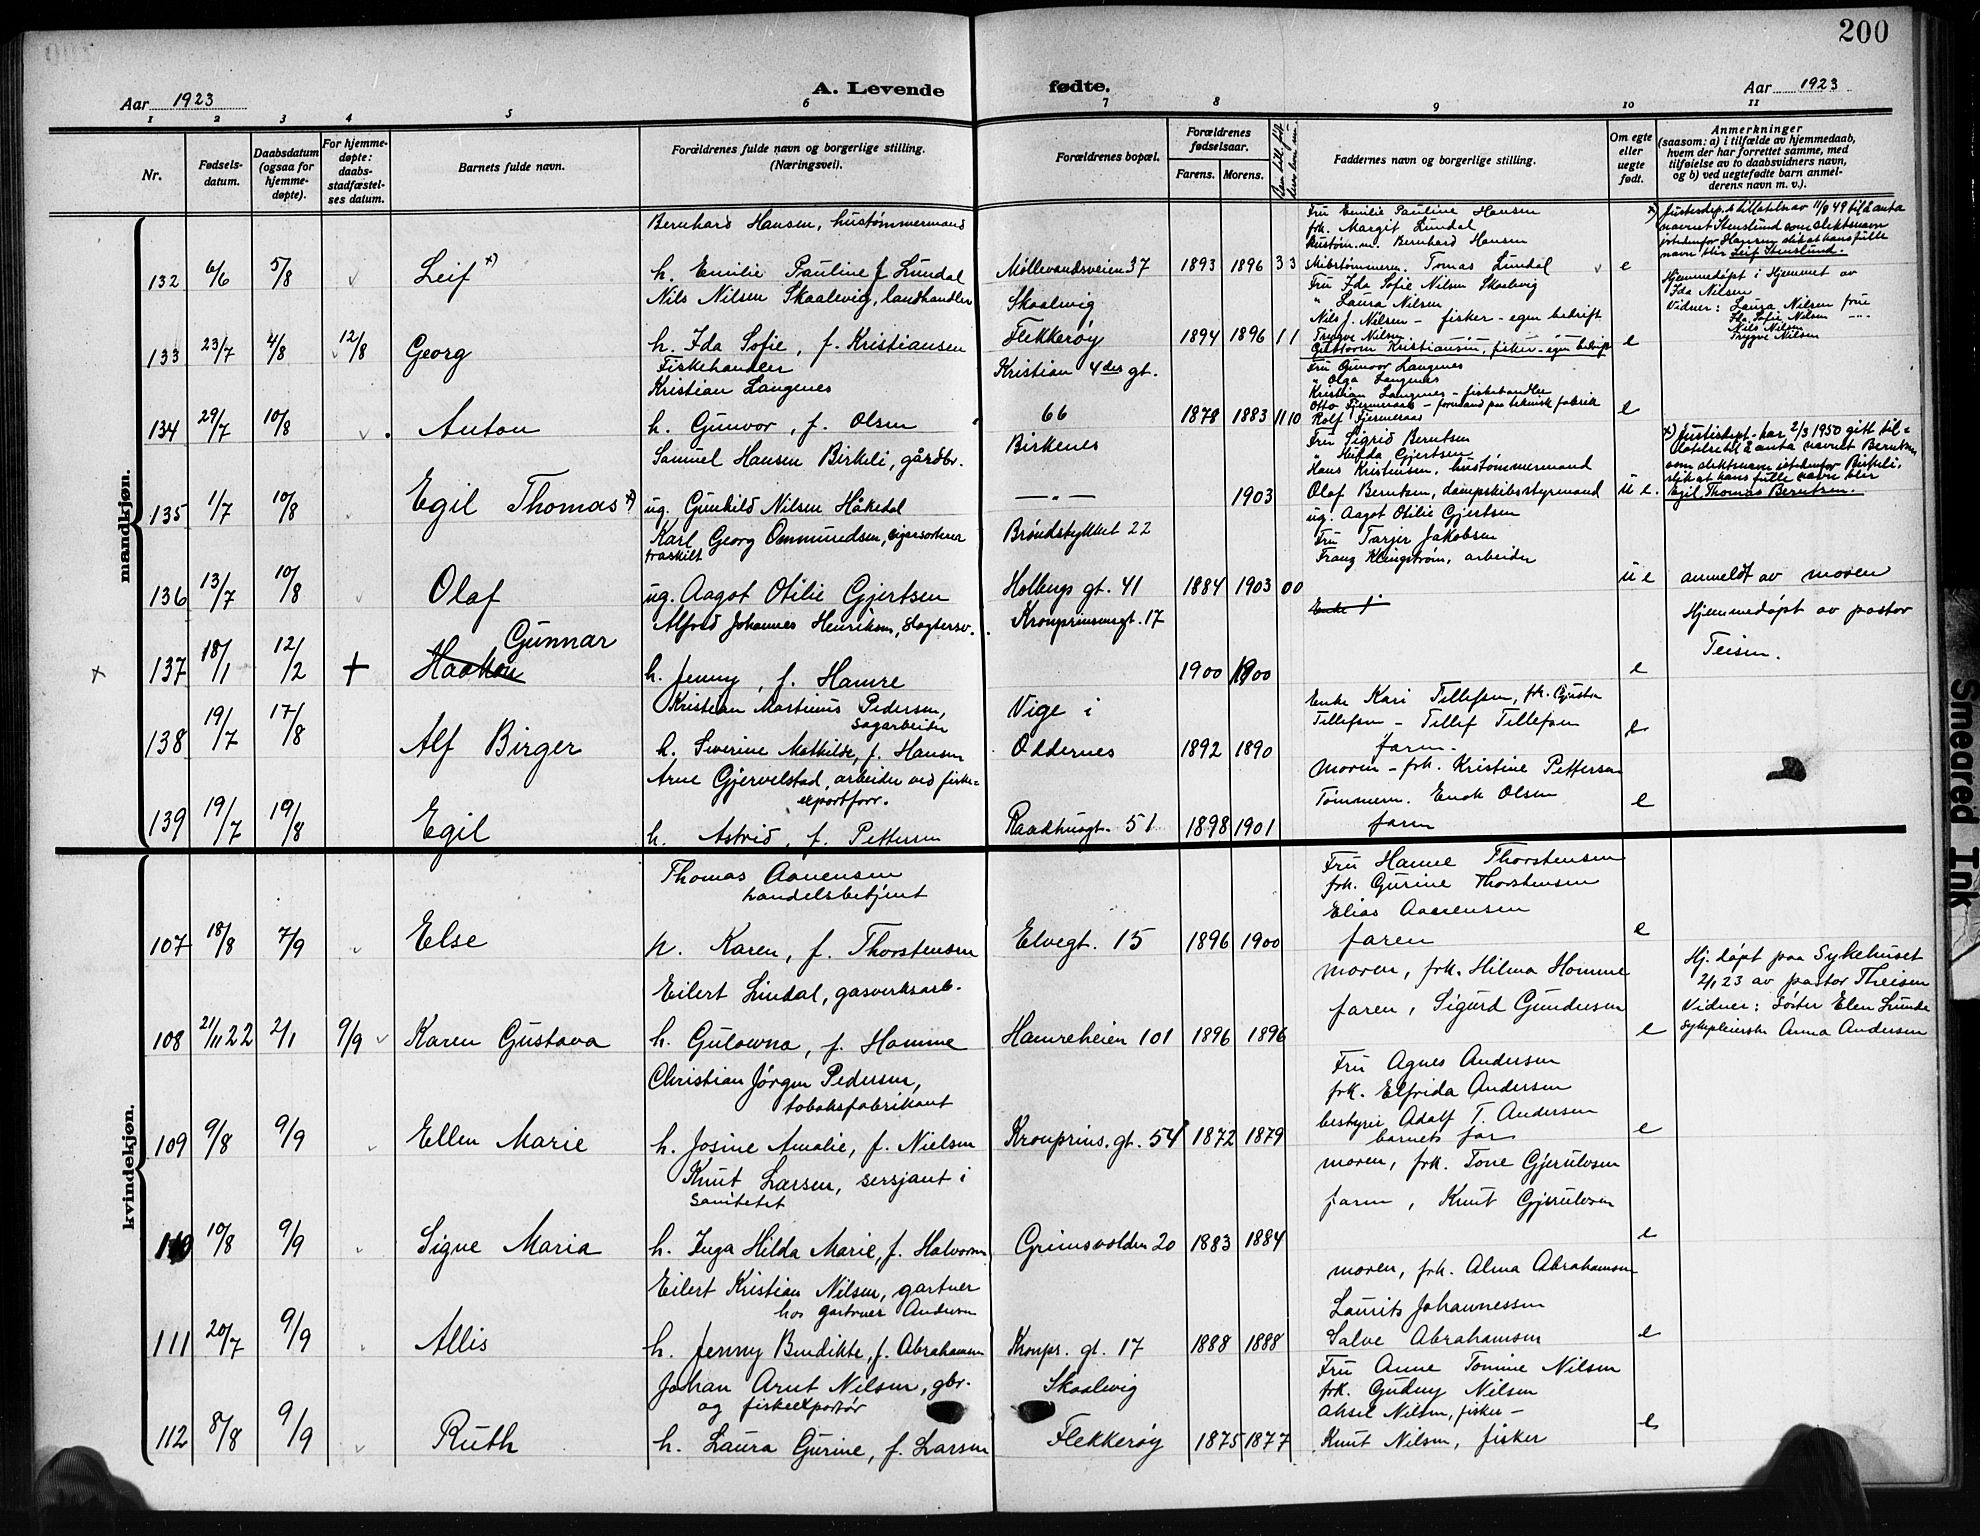 200
Aar 1923
A. Levende fødte.
Aar 1923
1 2 3 4 5 6 7 8 9 10 11
Nr.
Fødsels-
datum.
Daabsdatum
(ogsaa for
hjemme-
døpte).
For hjemme-
døpte:
daabs-
stadfæstel-
ses datum.
Barnets fulde navn.
Forældrenes fulde navn og borgerlige stilling.
(Næringsvei).
Forældrenes bopæl.
Forældrenes
fødselsaar.
Farens. Morens.
Faddernes navn og borgerlige stilling.
Om egte
eller
uegte
født.
Anmerkninger
(saasom: a) i tilfælde av hjemmedaab,
hvem der har forrettet samme, med
tilføielse av to daabsvidners navn,
og b) ved uegtefødte barn anmel-
derens navn m. v.).
mandkjøn.
132 6/6 5/8 Leif x)
Bernhard Hansen, hustømmermand
h. Emilie Pauline f. Lundal
Møllevandsveien 37 1893 1896 3 3
Fru Emilie Pauline Hansen
frk. Margit Lundal
hustøm.m. Bernhard Hansen
Skibstømmerm. Tomas Lundal
e
x) Justisdep.s tillatelse av 11/8 49 til å anta
navnet Stenslund som slektsnavn
istedenfor Hansen, slik at hans fulle
navn blir Leif Stenslund.
133 23/7 4/8 12/8 Georg
Nils Nilsen Skaalevig, landhandler
h. Ida Sofie, f. Kristiansen
Skaalevig
Flekkerøy 1894 1896 1 1
Fru Ida Sofie Nilsen Skaalvig
" Laura Nilsen
Nils J. Nilsen - fisker - egen bedrift
Trygve Nilsen
Kristiansen, fisker - egen bedrift
e
Hjemmedøpt i Hjemmet av
Ida Nilsen
Vidner: Laura Nilsen frue
Ida Sofie Nilsen
Nils Nilsen
Trygve Nilsen
134 29/7 10/8 Anton
Fiskehandler
Kristian Langenes
h. Gunvor, f. Olsen
Kristian 4des gt.
66 1878 1883 11 10
Fru Gunvor Langenes
" Olga Langenes
Kristian Langenes - fiskehandler
Otto Fjermeraas - formand paa teknisk fabrik
Rolf Fjermeraas
e
135 1/7 10/8 Egil Thomas x)
Samuel Hansen Birkeli, gårdbr.
ug. Gunhild Nilsen Håkedal
Birkenes
— " — 1903
Fru Sigrid Berntsen
" Hulda Gjertsen
Hans Kristensen, hustømmermand
Olaf Berntsen, dampskibsstyrmand
u e.
x) Justisdept. har 2/3 1950 gitt til-
latelse til å anta navnet Berntsen
som slektsnavn istedenfor Birkeli,
slik at hans fulle navn blir
Egil Thomas Berntsen.
136 13/7 10/8 Olaf
Karl Georg Ommundsen, cigarsorterer
fraskilt
ug. Aagot Otilie Gjertsen
Brøndstykket 22
Holbergs gt. 41 1884 1903 0 0
ug. Aagot Otilie Gjertsen
Fru Tarjer Jakobsen
Franz Klingstrøm, arbeider
u e
anmeldt av moren
x 137 18/1 12/2 + Gunnar
Haakon
Alfred Johannes Henriksen, slagtersv.
h. Jenny, f. Hamre
Kronprinsensgt. 17
1900 1900
e
Hjemmedøpt av pastor
Teisen.
138 19/7 17/8 Alf Birger
Kristian Martinius Pedersen,
sagarbeider
h. Severine Mathilde, f. Hansen
Vige i
Oddernes 1892 1890
Enke Kari Tellefsen, frk.
Tellefsen - Tellef Tellefsen
faren.
e
139 19/7 19/8 Egil
Arne Gjervelstad, arbeider ved fiske-
exportforr.
h. Astrid, f. Pettersen
Raadhusgt. 51 1898 1901
moren - frk. Kristine Pettersen
Tømmerm. Enok Olsen
faren
e
kvindekjøn.
107 18/8 7/9 Else
Thomas Aanensen
handelsbetjent
h. Karen, f. Thorstensen
Elvegt. 15 1896 1900
Fru Hanne Thorstensen
frk. Gurine Thorstensen
Elias Aanensen
faren
e
108 21/11 22 2/1 9/9 Karen Gustava
Eilert Lindal, gasverksarb.
h. Gulowna, f. Homme
Hamreheien 101 1896 1896
moren, frk. Hilma Homme
faren, Sigurd Gundersen
e
Hj. døpt paa Sykehuset
2/1 23 av pastor Theisen
Vidner: Søster Elen Lunde
sykepleierske Anna Andersen
109 9/8 9/9 Ellen Marie
Christian Jørgen Pedersen,
tobaksfabrikant
h. Josine Amalie, f. Nielsen
Kronprins. gt. 54 1872 1879
Fru Agnes Andersen
frk. Elfrida Andersen
bestyrer Adolf T. Andersen
barnets far
e
110 10/8 9/9 Signe Maria
Knut Larsen, sersjant i
sanitetet
h. Inga Hilda Marie, f. Halvorsen
Grimsvolden 20 1883 1884
moren, frk. Tone Gjerulvsen
faren, Knut Gjerulvsen
e
111 20/7 9/9 Allis
Eilert Kristian Nilsen, gartner
hos gartner Andersen
h. Jenny Bendikte, f. Abrahamsen
Kronpr. gt. 17 1888 1888
moren, frk. Alma Abrahamsen
Laurits Johannessen
Salve Abrahamsen
e
112 8/8 9/9 Ruth
Johan Arnt Nilsen, gbr.
og fiskeexportør
h. Laura Gurine, f. Larsen
Skaalevig
Flekkerøy 1875 1877
Fru Anne Tomine Nilsen
frk. Gudny Nilsen
Aksel Nilsen, fisker -
Knut Nilsen, fisker
e
Smeared Ink